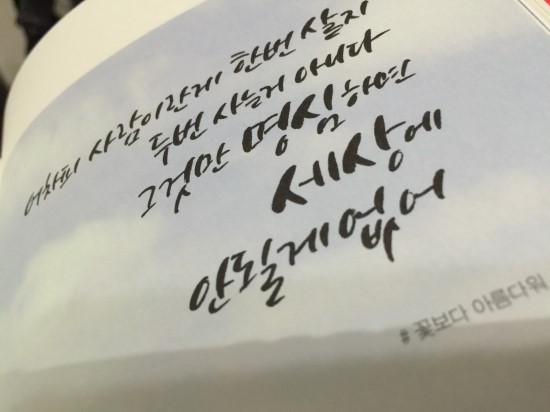 어차피 사람이란게 한번 살지
두번 사는거 아니다
그것만 명심하면
세상에
안될게 없어
# 꽃보다 아름다워